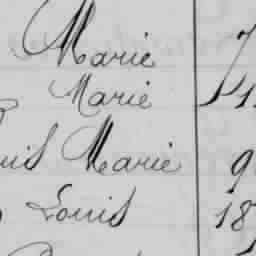 Marie
Marie
uis Marie 9
Louis 18